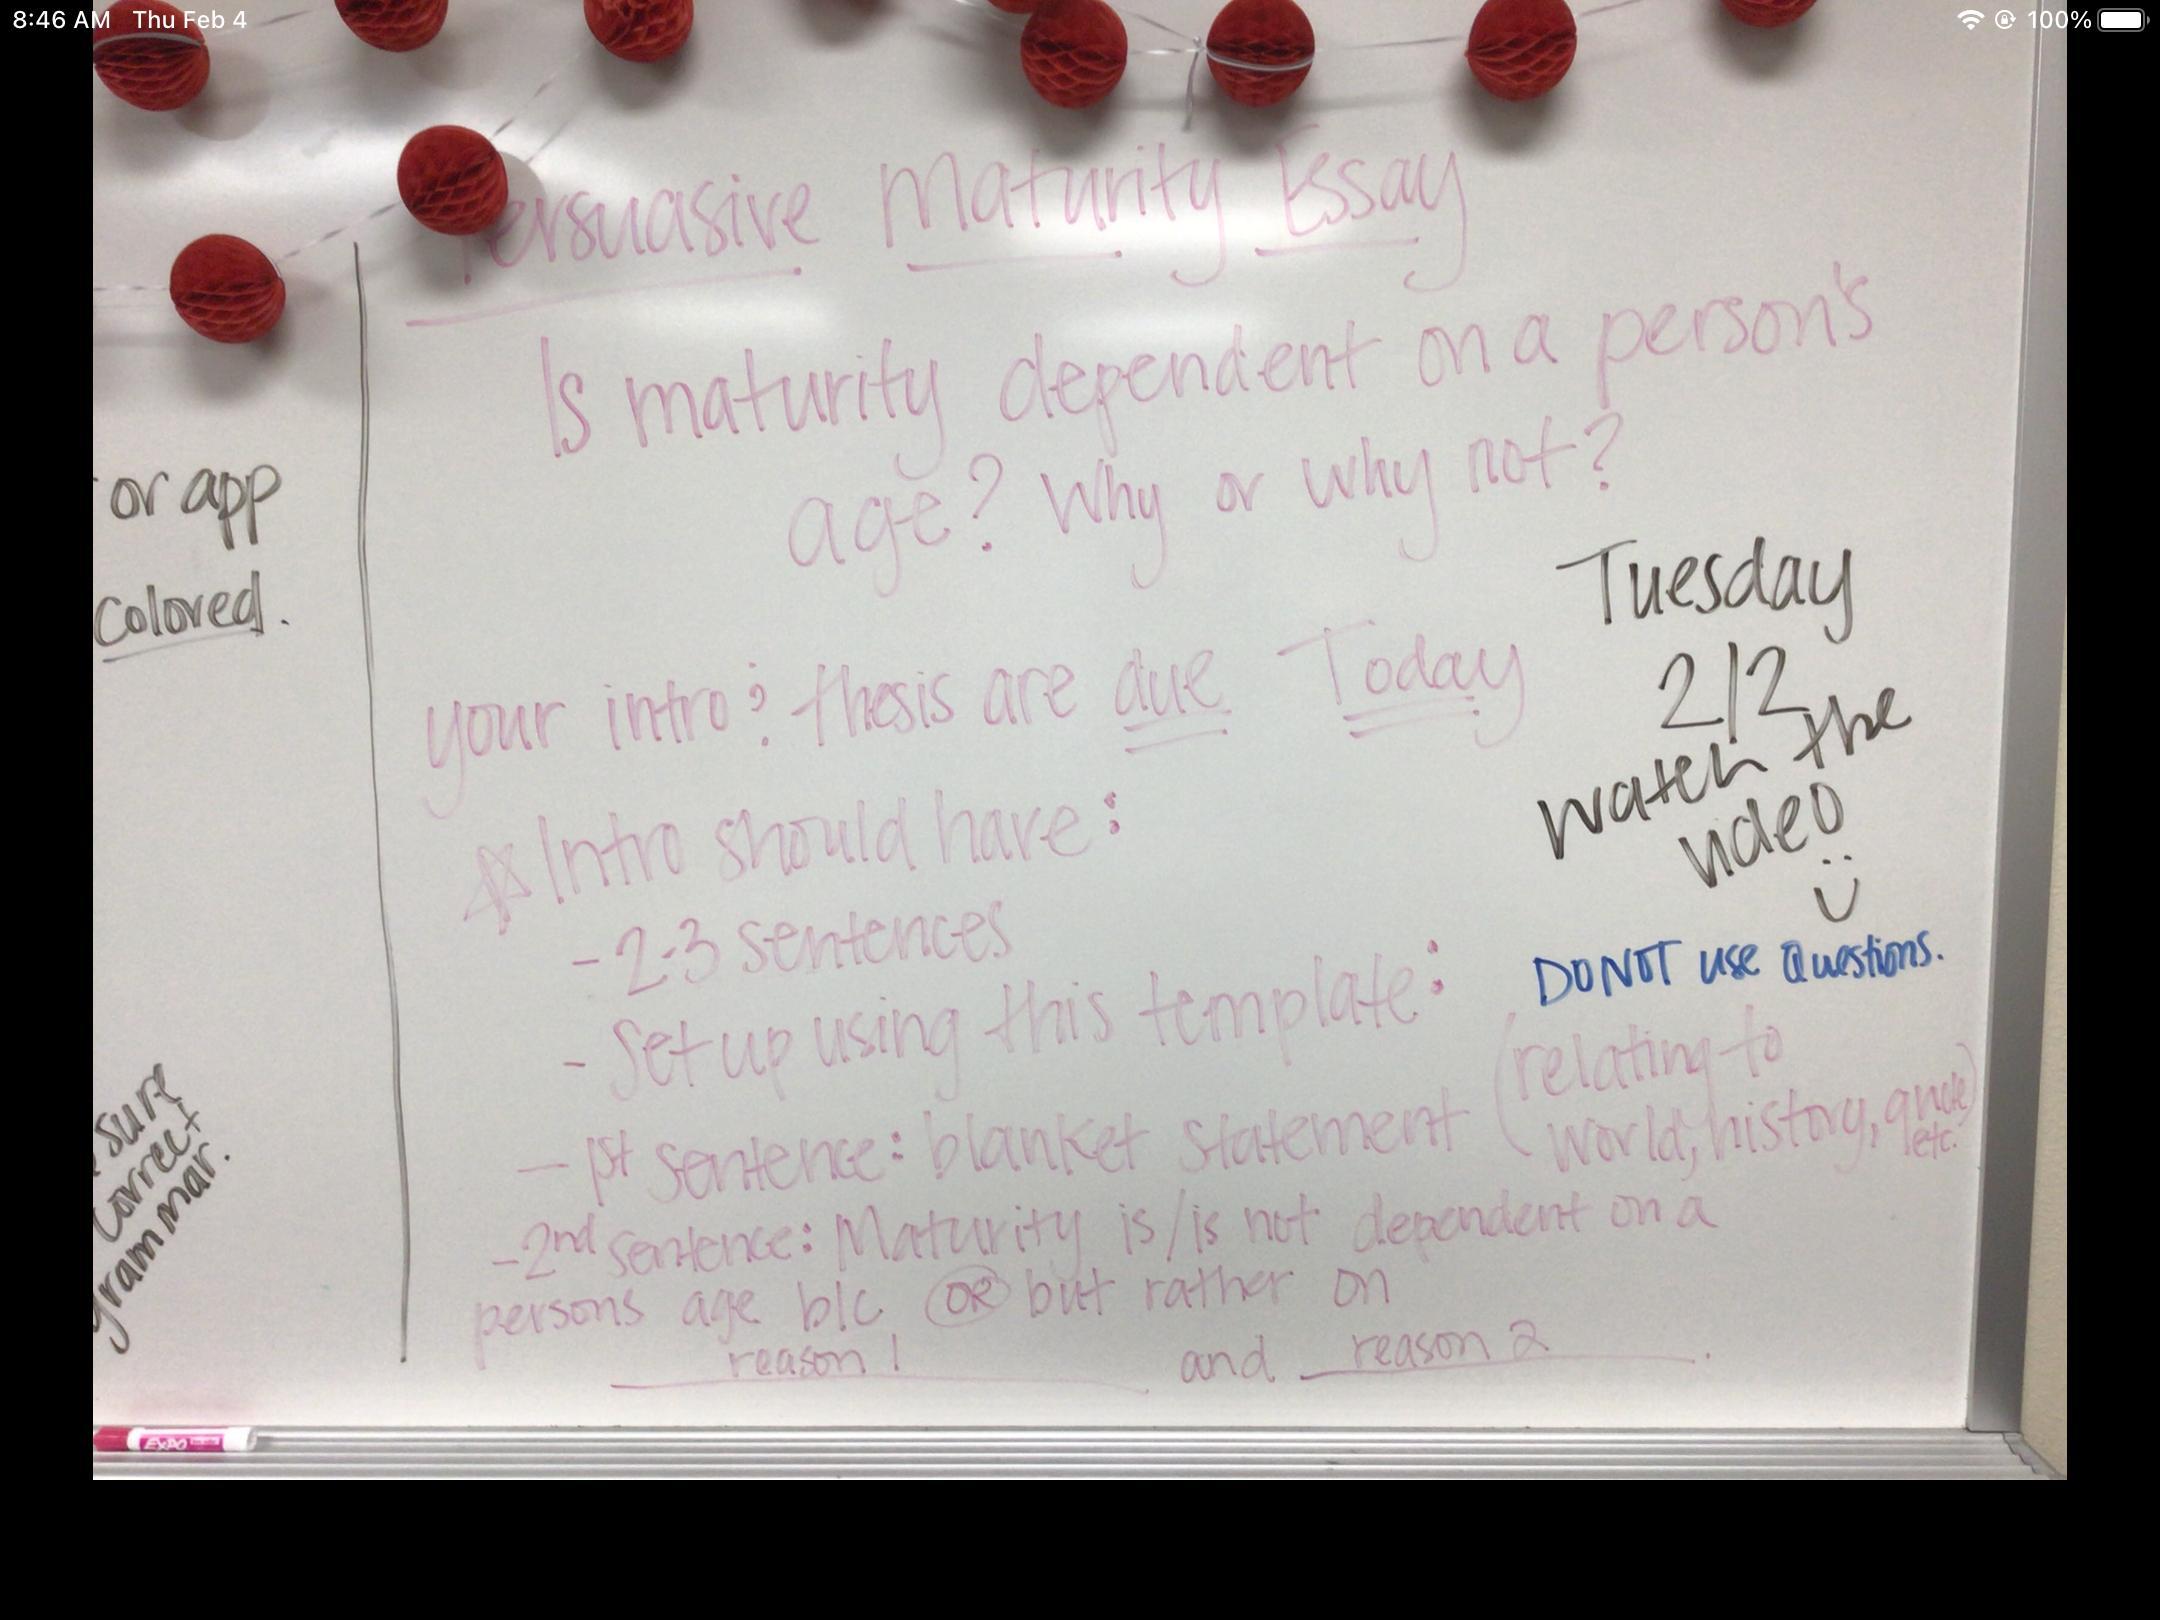 8:46 AM Thu Feb 4
100%
Persuasive Maturity Essay
Is maturity dependent on a person's
age? Why or why not?
or app
colored.
Tuesday
2/2
watch the
video
your intro & thesis are due Today
Intro should have:
- 2-3 sentences
DO NOT use Questions.
- Set up using this template:
- 1st sentence: blanket statement (relating to
world, history, quote, etc.)
sure
correct
grammar.
- 2nd sentence: Maturity is/is not dependent on a
persons age b/c OR but rather on
reason 1 and reason 2.
EXPO